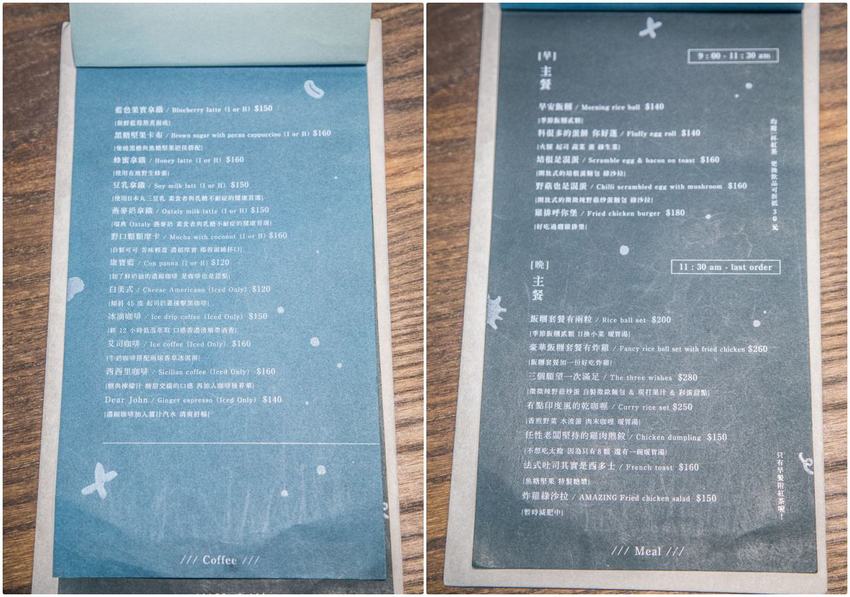 藍色果實拿鐵 / Blueberry latte (I or H) $150
(新鮮藍莓熬煮而成)
黑糖堅果卡布 / Brown sugar with pecan cappuccino (I or H) $160
蜂蜜拿鐵 / Honey latte (I or H) $160
(使用在地野生蜂蜜)
豆乳拿鐵 / Soy milk latt (I or H) $150
(使用日本丸三豆乳 素食者與乳糖不耐症的健康首選)
燕麥奶拿鐵 / Oataly milk latte (I or H) $150
(瑞典 Oataly 燕麥奶 素食者與乳糖不耐症的健康首選)
野口顆顆摩卡 / Mocha with coconut (I or H) $160
康寶藍 / Con panna (I or H) $120
(加了鮮奶油的濃縮咖啡 是咖啡也是甜點)
白美式 / Cheese Americano (Iced Only) $120
(傾斜 45 度 起司奶蓋撞擊黑咖啡)
冰滴咖啡 / Ice drip coffee (Iced Only) $150
(經 12 小時低溫萃取 口感香濃後韻帶酒香)
艾司咖啡 / Ice coffee (Iced Only) $160
(牛奶咖啡搭配兩球香草冰淇淋)
西西里咖啡 / Sicilian coffee (Iced Only) $160
Dear John / Ginger espresso (Iced Only) $140
(濃縮咖啡加入薑汁汽水 清爽舒暢)
/// Coffee ///
[早]
主餐
9 : 00 - 11 : 30 am
早安飯糰 / Morning rice ball $140
(季節飯糰貳顆)
料很多的蛋餅 你好蓬 / Fluffy egg roll $140
(火腿 起司 蔬菜 蛋 綠生菜)
培根是混蛋 / Scramble egg & bacon on toast $160
(開放式的培根蛋麵包 綠沙拉)
野菇也是混蛋 / Chilli scrambled egg with mushroom $160
(開放式的微微辣野菇炒蛋麵包 綠沙拉)
雞排呼你堡 / Fried chicken burger $180
(好吃過癮雞排堡)
均附一杯紅茶 更換飲品可折抵 30 元
[晚]
主餐
11 : 30 am - last order
飯糰套餐有兩粒 / Rice ball set $200
(季節飯糰貳顆 日換小菜 暖胃湯)
豪華飯糰套餐有炸雞 / Fancy rice ball set with fried chicken $260
(飯糰套餐加一份好吃炸雞)
三個願望一次滿足 / The three wishes $280
(微微辣野菇炒蛋 自製微歐麵包 & 現打果汁 & 彩蛋甜點)
有點印度風的乾咖喱 / Curry rice set $250
(香煎野菜 水波蛋 肉末咖哩 暖胃湯)
任性老闆堅持的雞肉煎餃 / Chicken dumpling $150
(不想吃太飽 因為只有8顆 還有一碗暖胃湯)
法式吐司其實是西多士 / French toast $160
(焦糖堅果 特製糖漿)
炸雞綠沙拉 / AMAZING Fried chicken salad $150
(暫時減肥中)
只有早餐附紅茶喔！
/// Meal ///